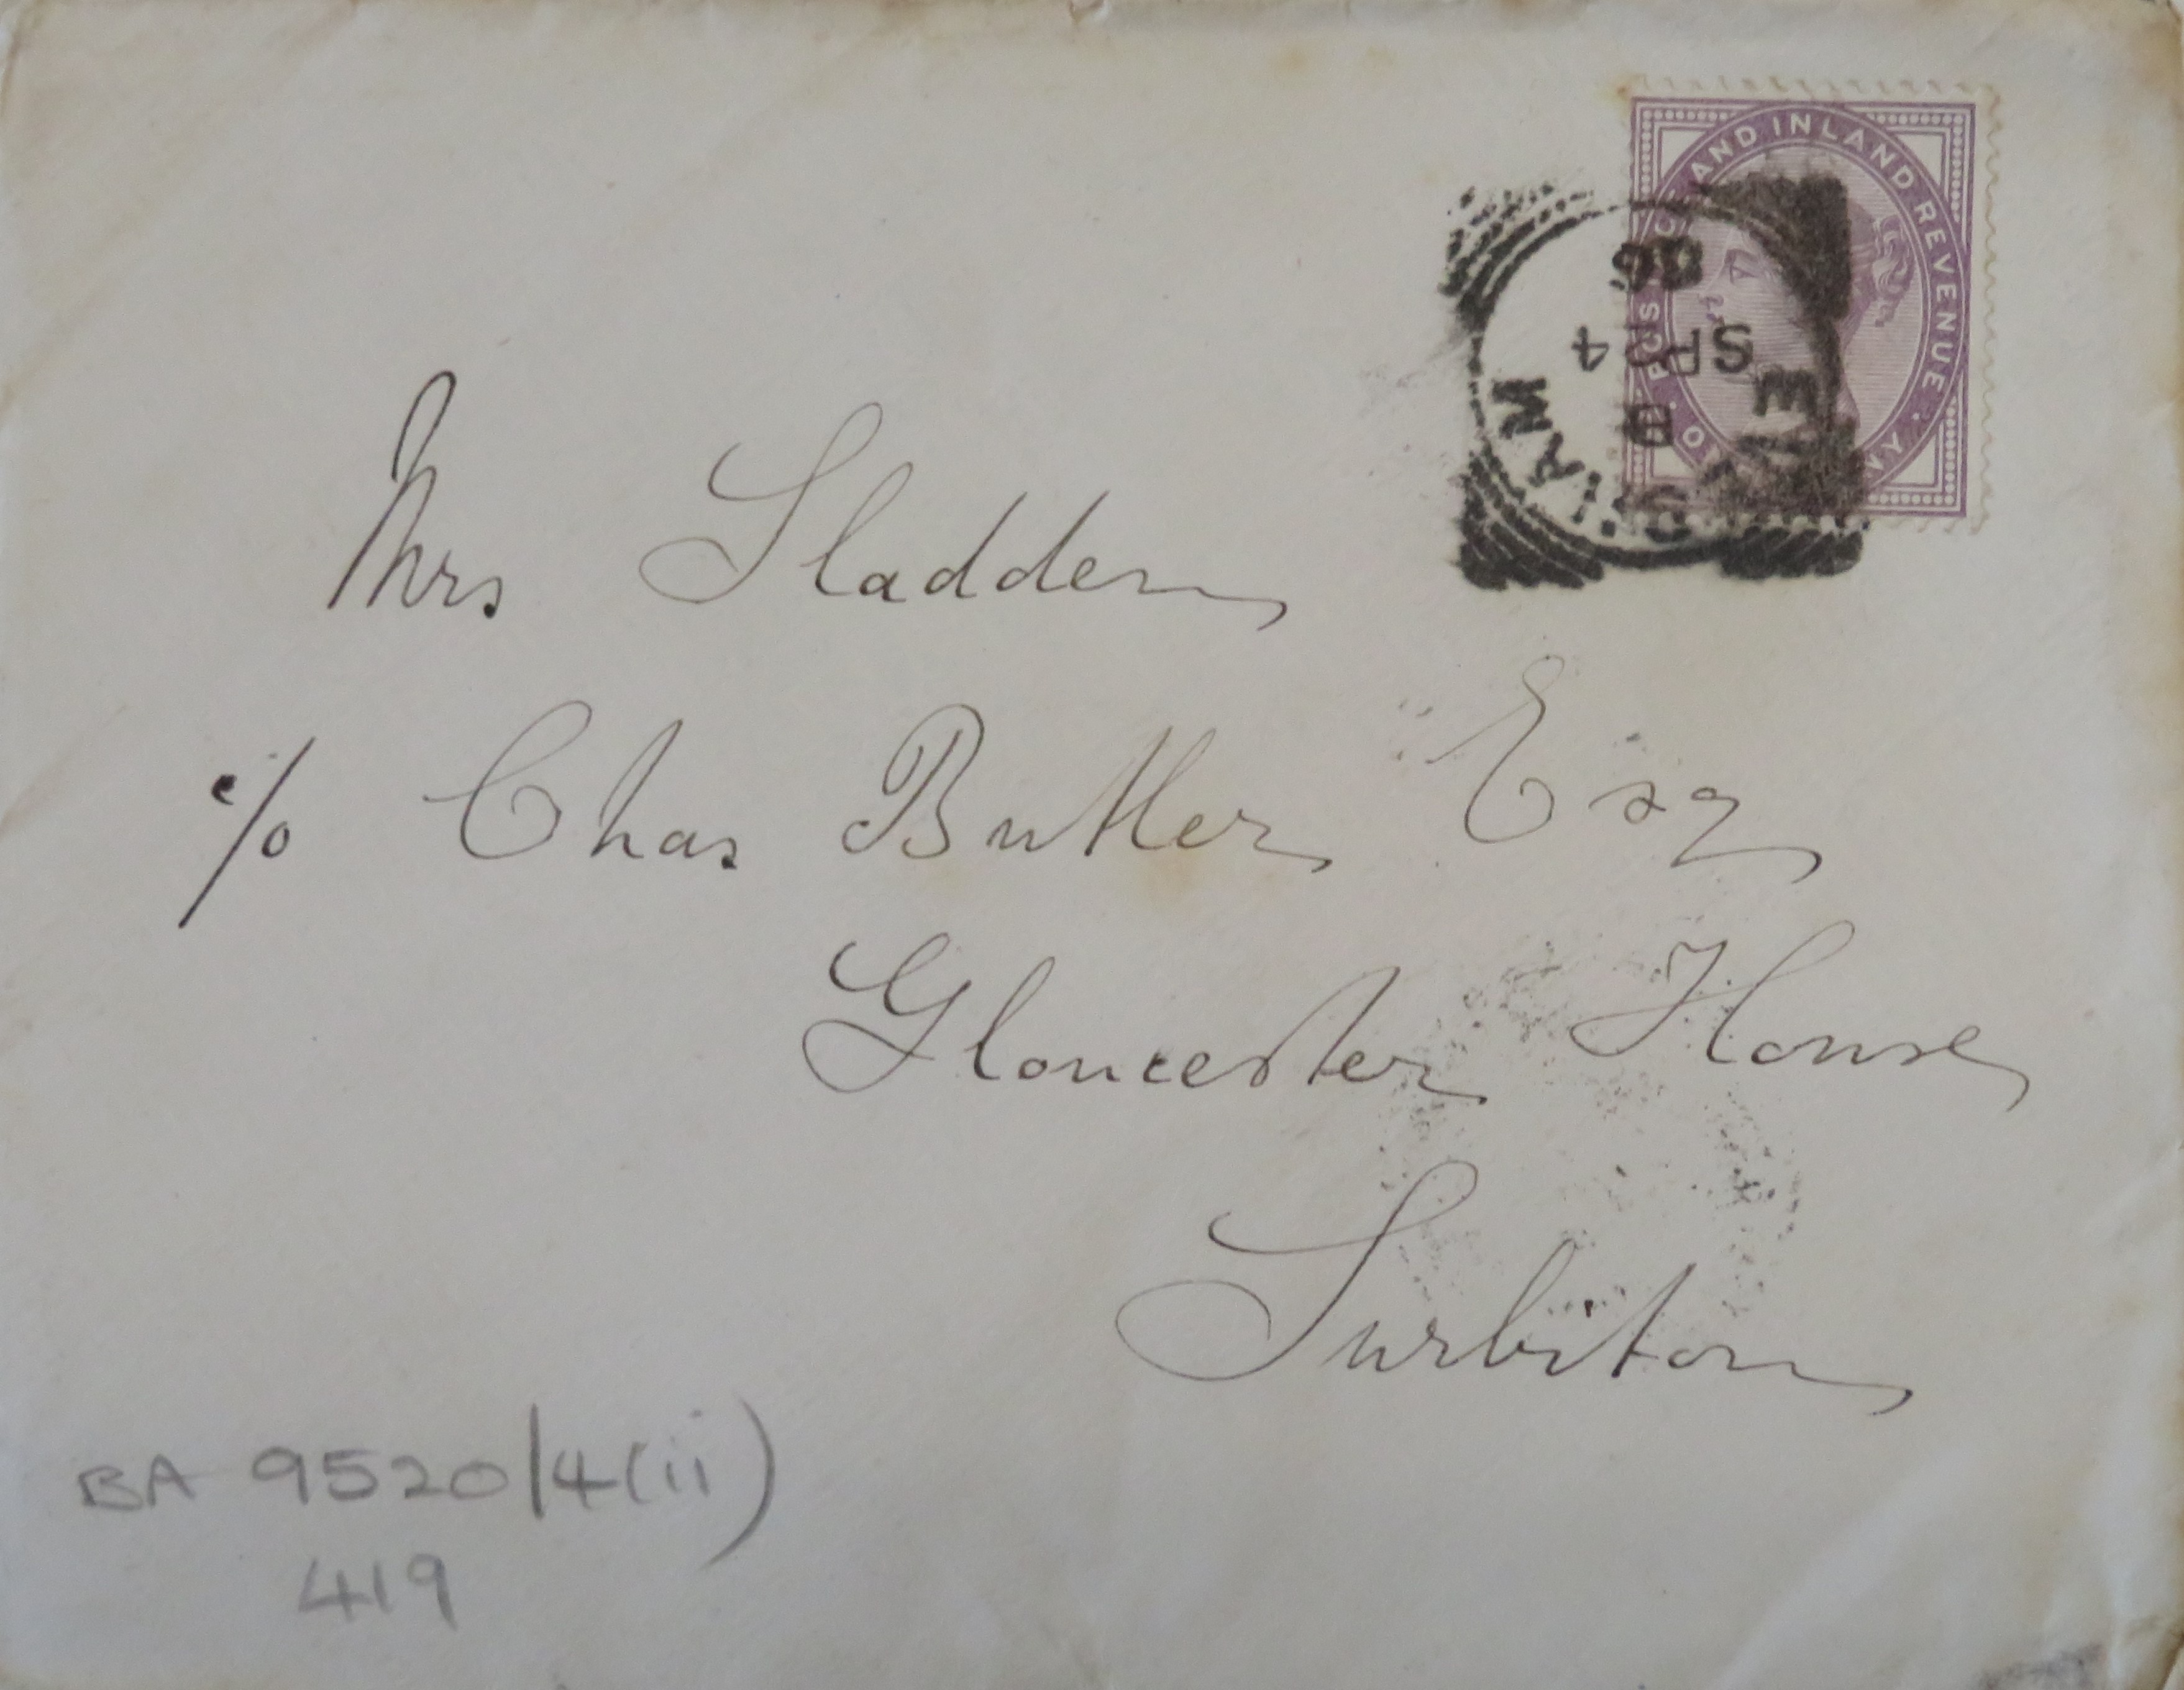 POSTAGE AND INLAND REVENUE
EVESHAM
SP 24
96
Mrs Sladden
c/o Chas Butler Esq
Gloucester House
Surbiton
BA 9520/4(ii)
419